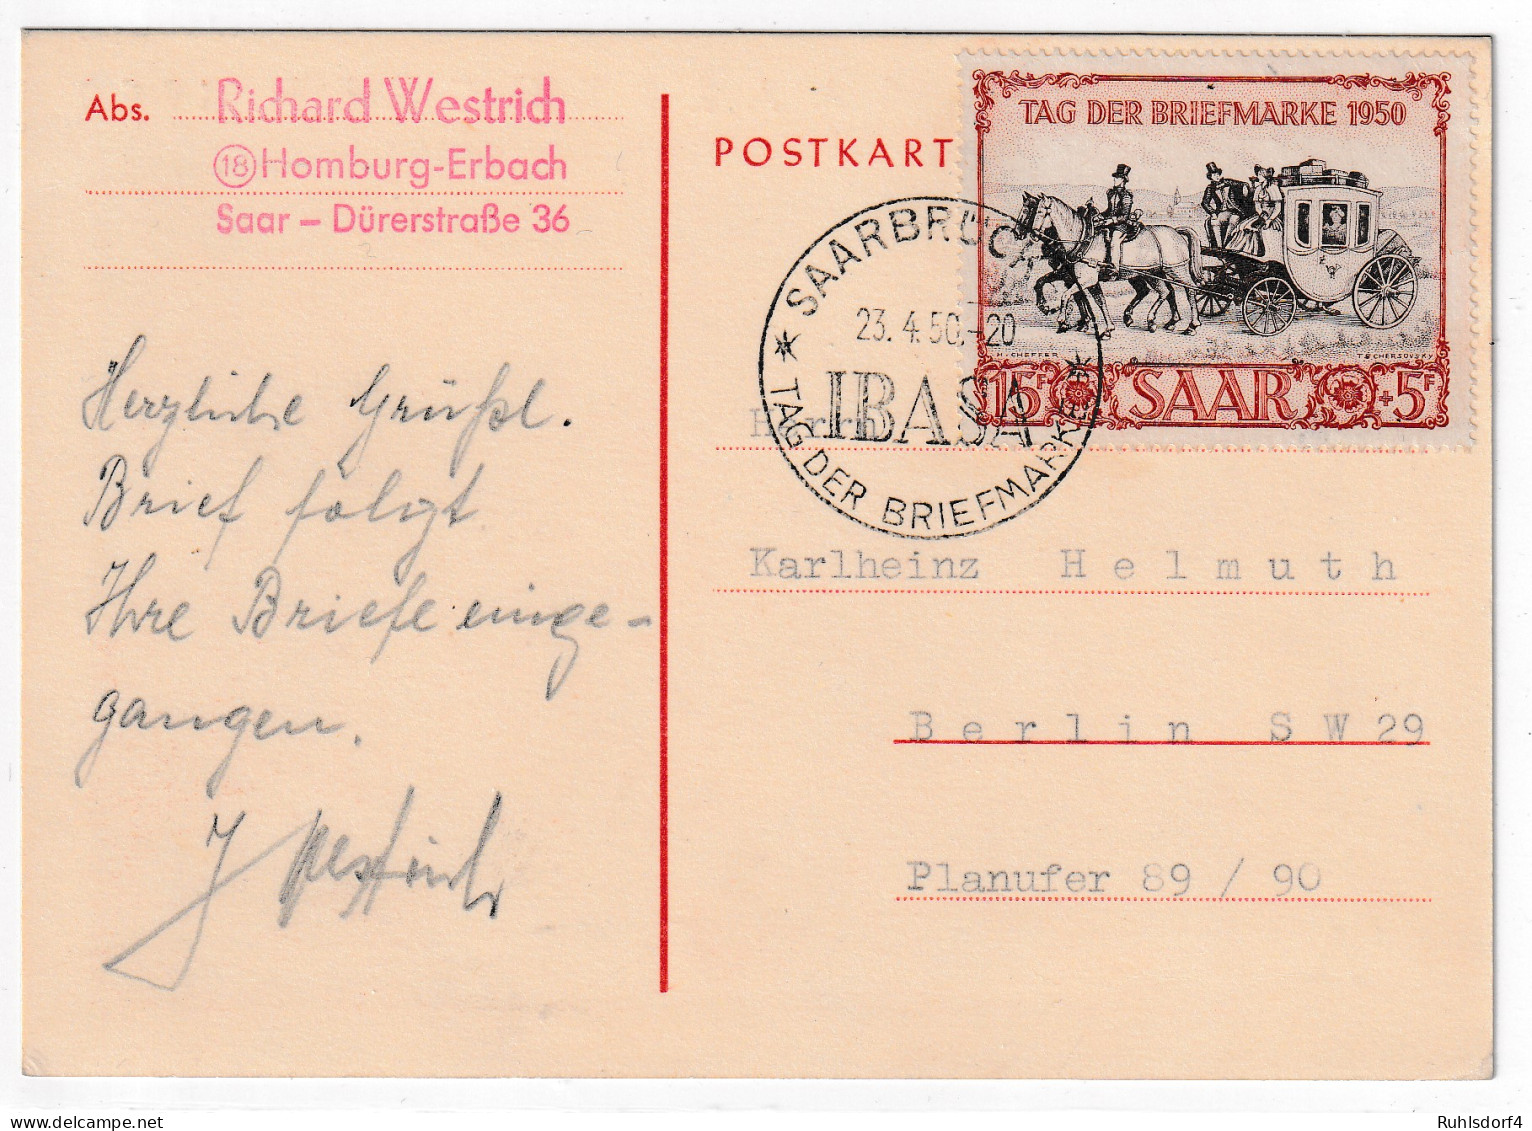 Abs. Richard Westrich
(18) Homburg-Erbach
Saar – Dürerstraße 36
Herzliche Grüße.
Brief folgt
Ihre Briefe einge-
gangen.
POSTKART
TAG DER BRIEFMARKE 1950
H·CHEFFER
15F SAAR +5F
SAARBRÜCKEN
23.4.50.-20
IBASA
TAG DER BRIEFMARKE
Herrn
Karlheinz Helmuth
Berlin SW 29
Planufer 89 / 90
Ruhlsdorf4